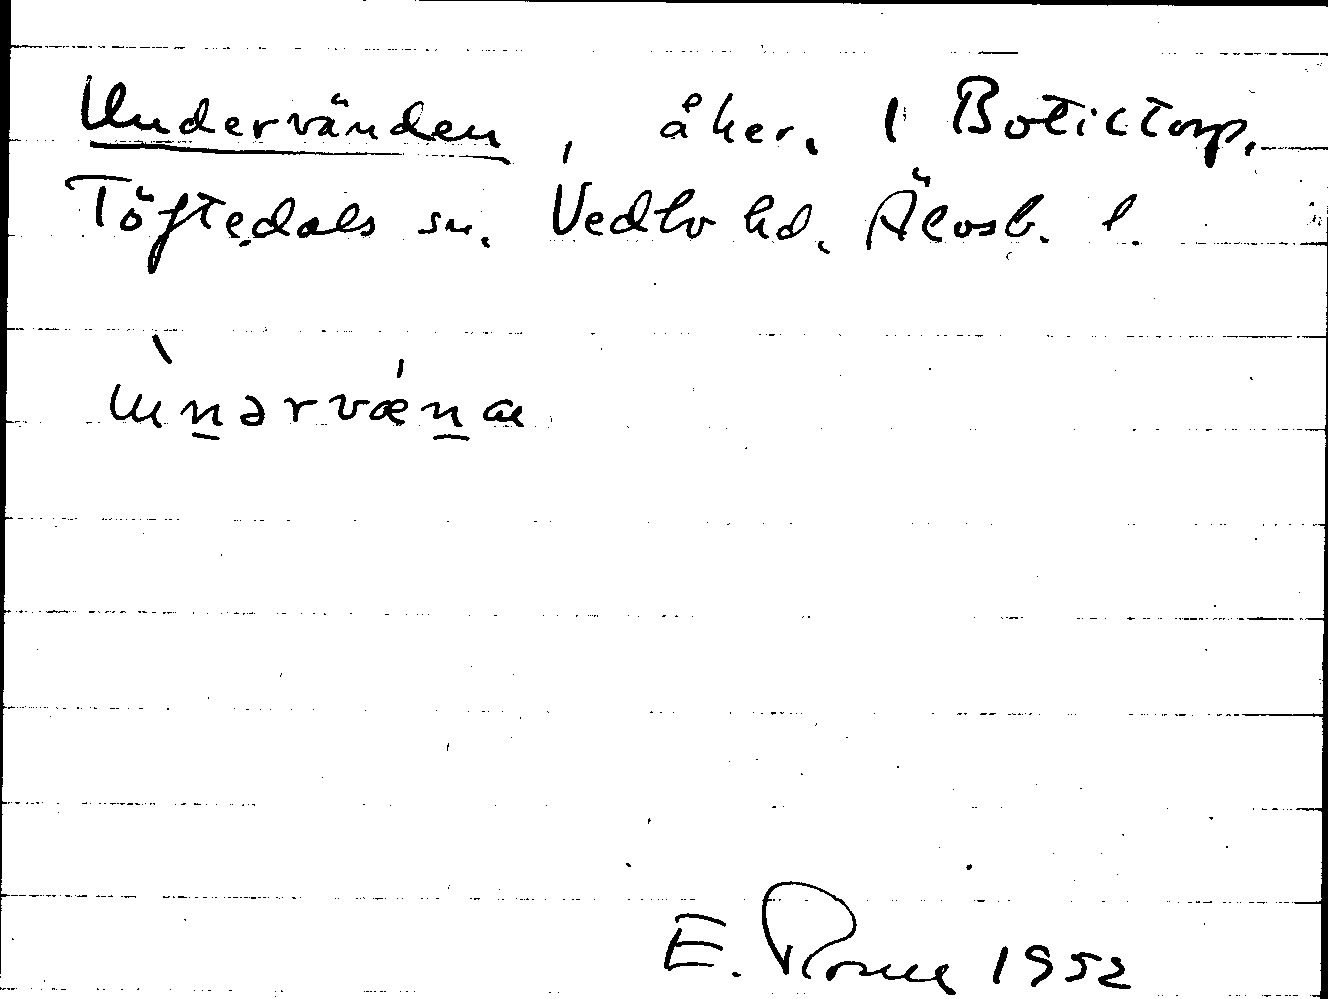 Undervänden, åker, 1 Botictorp,
Töftedals sn. Vedbo hd. Älvsb. l.
ùnərvǽnæ
E. 1952